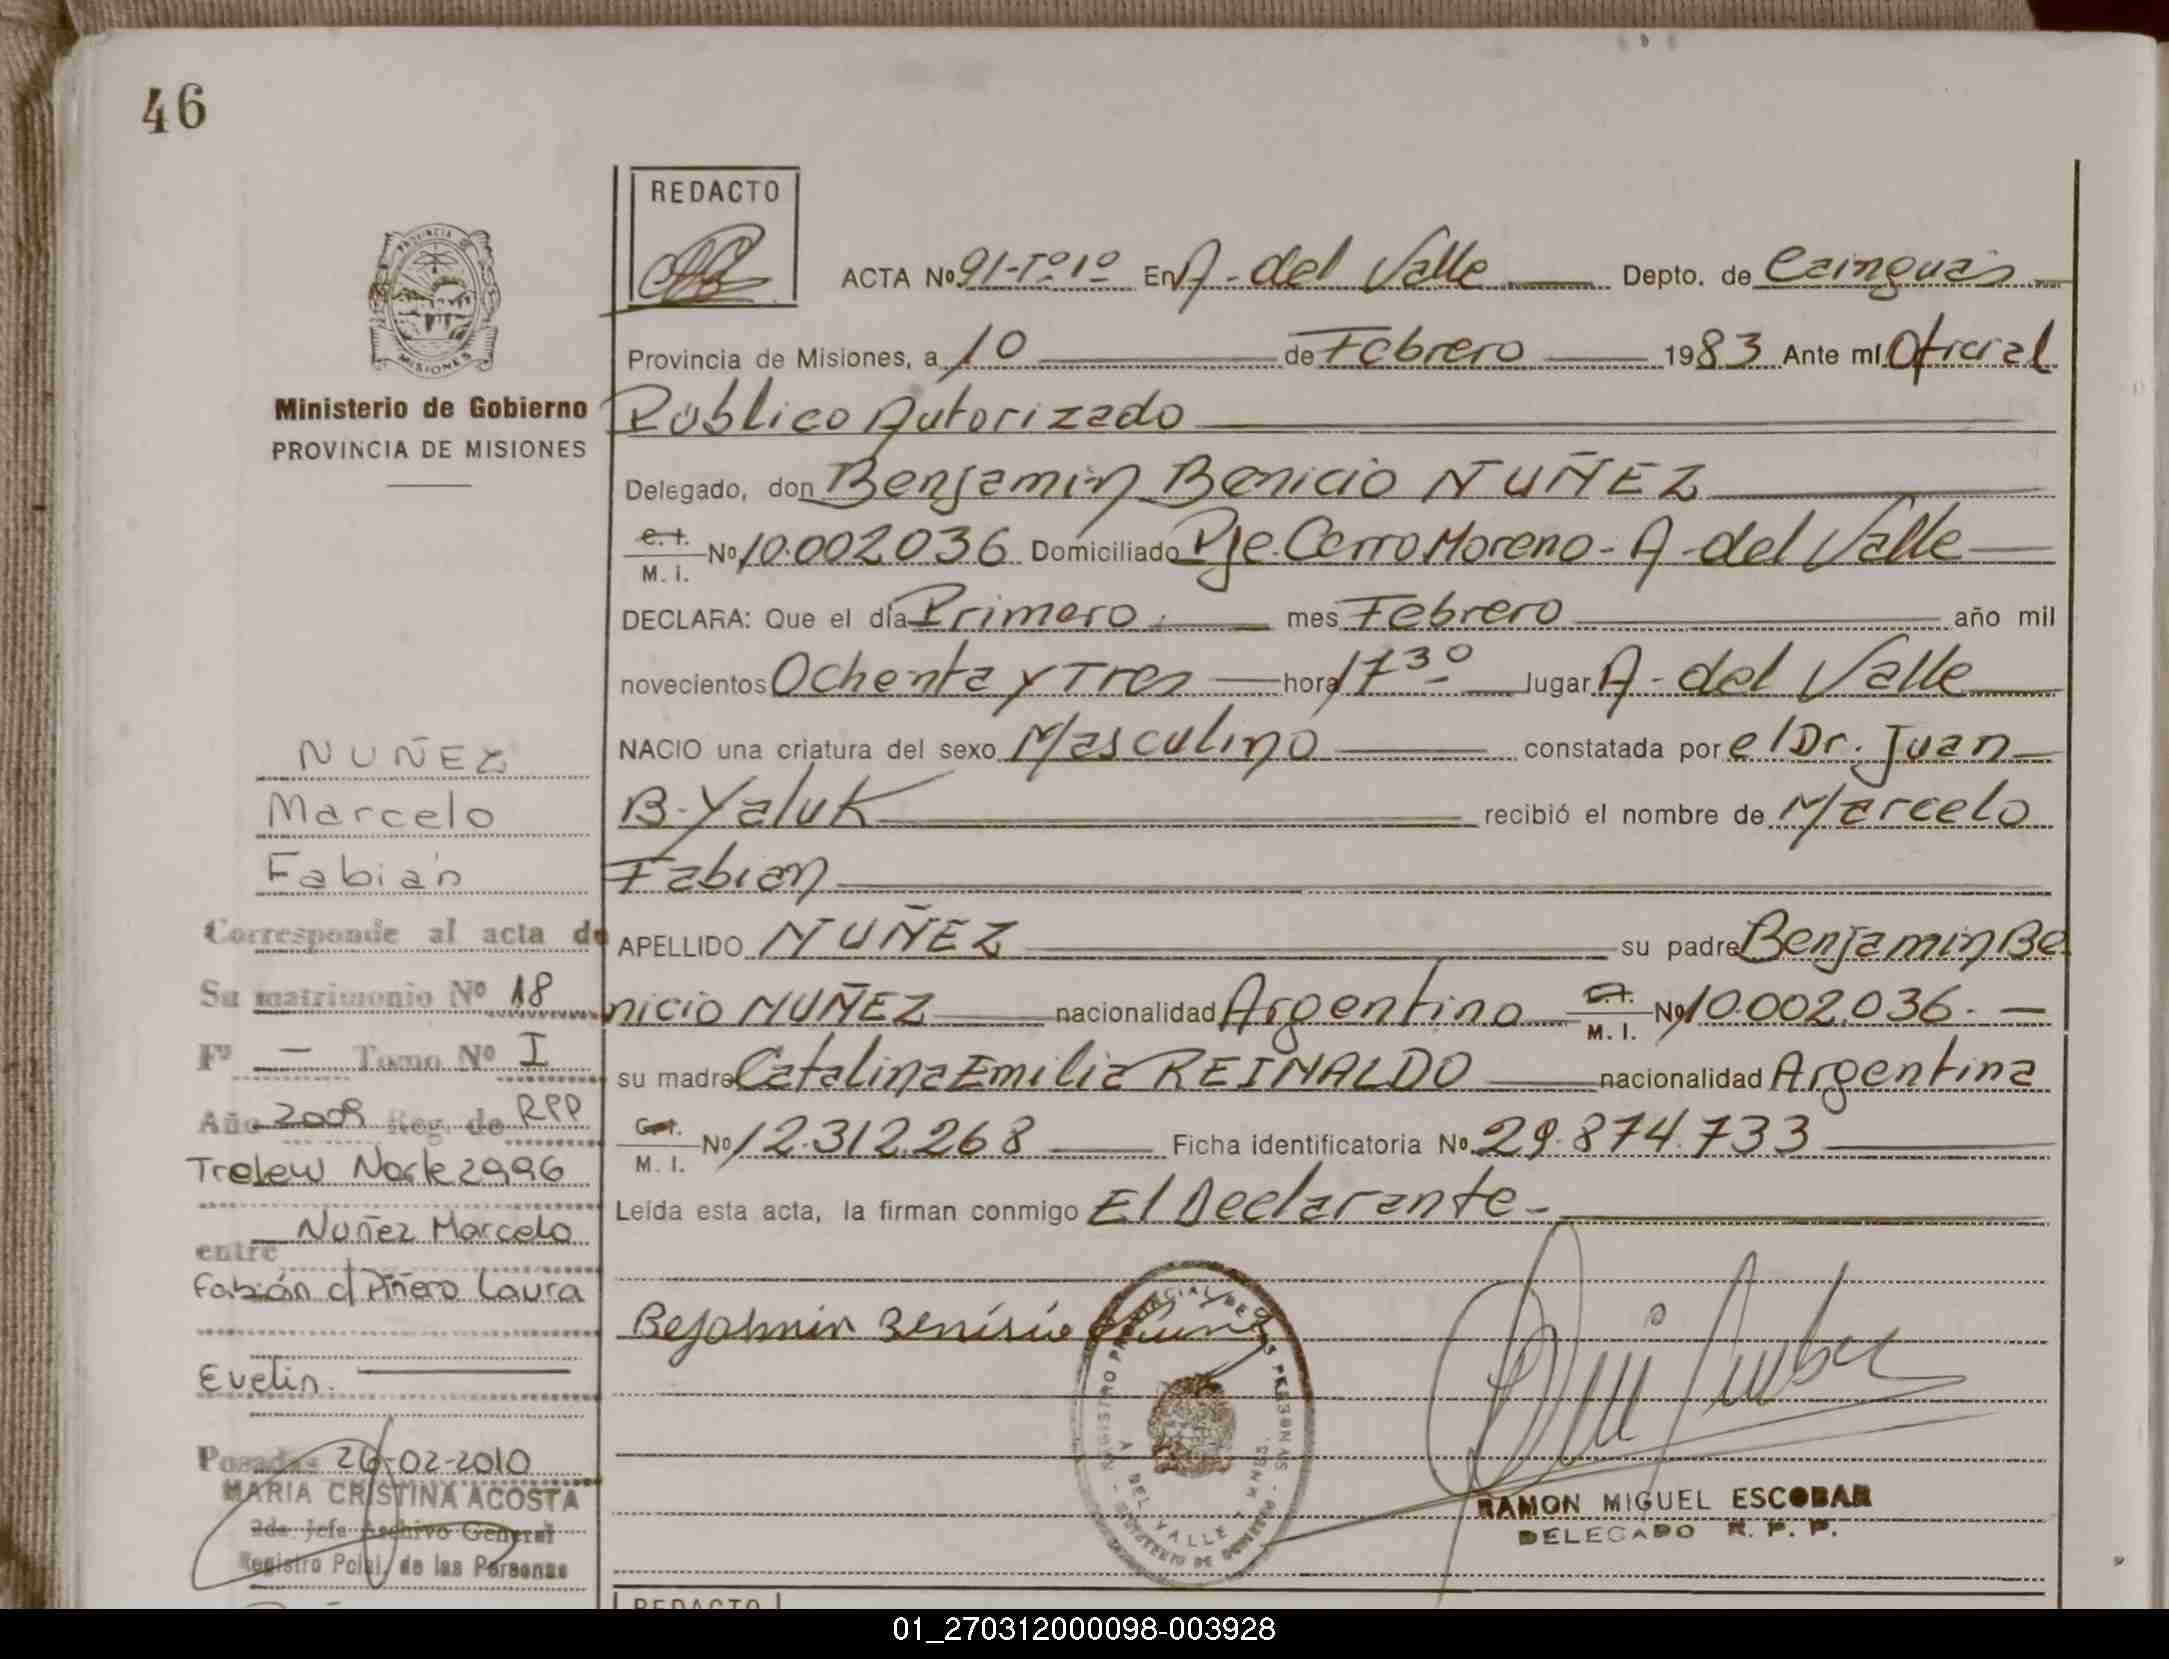 46
REDACTO
PROVINCIA DE
MISIONES
Ministerio de Gobierno
PROVINCIA DE MISIONES
ACTA Nº 91-Tº1º En A. del Valle Depto. de Cainguás
Provincia de Misiones, a 10 de Febrero 1983 Ante mí Oficial
Público Autorizado
Delegado, don Benjamin Benicio NUÑEZ
C. I. M. I. Nº 10.002.036 Domiciliado Pje. Cerro Moreno - A. del Valle
DECLARA: Que el día Primero mes Febrero año mil
novecientos Ochenta y Tres hora 17 30 lugar A. del Valle
NACIO una criatura del sexo Masculino constatada por el Dr. Juan
B. Yaluk recibió el nombre de Marcelo
Fabian
APELLIDO NUÑEZ su padre Benjamin Be
nicio NUÑEZ nacionalidad Argentino C. I. M. I. Nº 10.002.036.
su madre Catalina Emilia REINALDO nacionalidad Argentina
C. I. M. I. Nº 12.312.268 Ficha identificatoria Nº 29.874.733
Leída esta acta, la firman conmigo El Declarante
Bejasmin Benisio
RAMON MIGUEL ESCOBAR
DELEGADO R. P. P.
REGISTRO PROVINCIAL DE LAS PERSONAS
A. DEL VALLE - MNES.
MINISTERIO DE GOBIERNO
NUÑEZ
Marcelo
Fabián
Corresponde al acta de
Su matrimonio Nº 18
Fº — Tomo Nº I
Año 2009 Reg. de RPP
Trelew Norte 2996
entre Nuñez Marcelo
Fabián c/ Piñero Laura
Evelin.
Posadas 26-02-2010
MARIA CRISTINA ACOSTA
2da. Jefe Archivo General
Registro Pcial. de las Personas
REDACTO
01_270312000098-003928